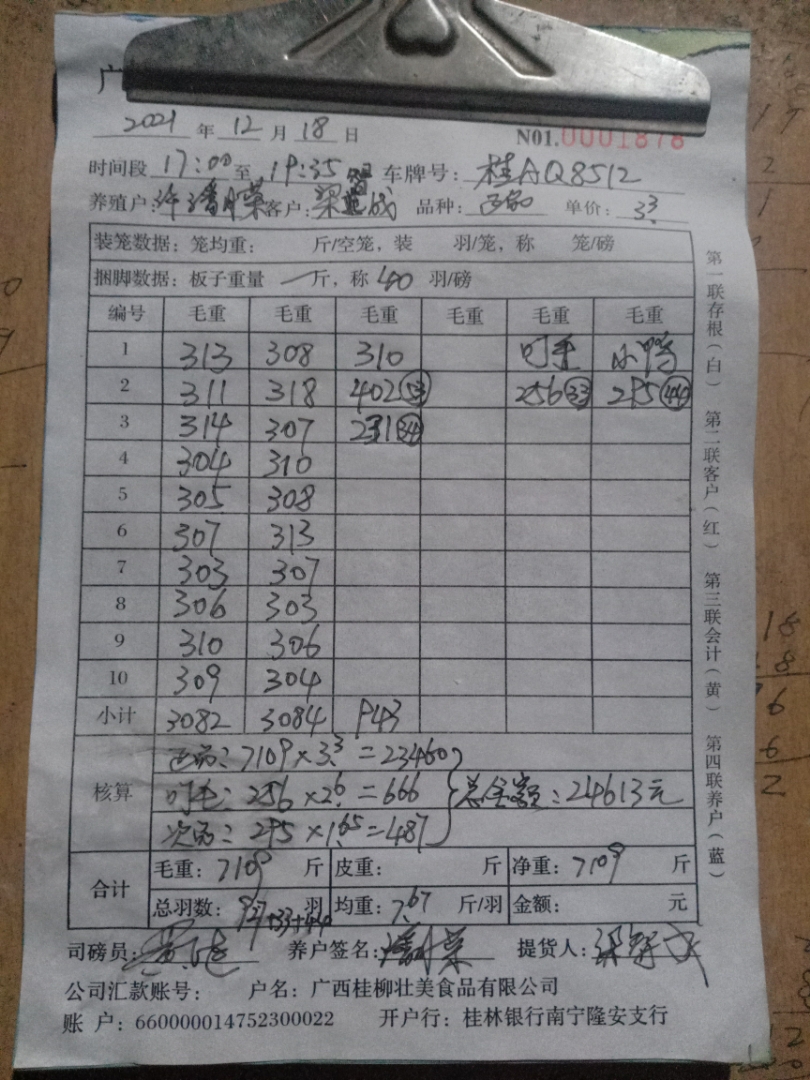 广
2021 年 12 月 18 日 N01.0001878
时间段 17:00 至 19:35 车牌号: 桂AQ8512
养殖户: 许 潘月荣 客户: 梁 成 品种: 正品 单价: 3.3
装笼数据: 笼均重: 斤/空笼, 装 羽/笼, 称 笼/磅
捆脚数据: 板子重量 一 斤, 称 40 羽/磅
编号 毛重 毛重 毛重 毛重 毛重 毛重
1 313 308 310 叼毛 小鸭
2 311 318 402 53 256 33 295 44
3 314 307 231
4 304 310
5 305 308
6 307 313
7 303 307
8 306 303
9 310 306
10 309 304
小计 3082 3084 943
核算
正品: 7109×3.3=23460
叼毛: 256×2.6=666 总金额: 24613元
次品: 295×1.65=487
合计
毛重: 7109 斤 皮重: 斤 净重: 7109 斤
总羽数: 927+33+44 羽 均重: 7.67 斤/羽 金额: 元
司磅员: 养户签名: 潘月荣 提货人:
公司汇款账号: 户名: 广西桂柳壮美食品有限公司
账 户: 660000014752300022 开户行: 桂林银行南宁隆安支行
第一联存根(白) 第二联客户(红) 第三联会计(黄) 第四联养户(蓝)